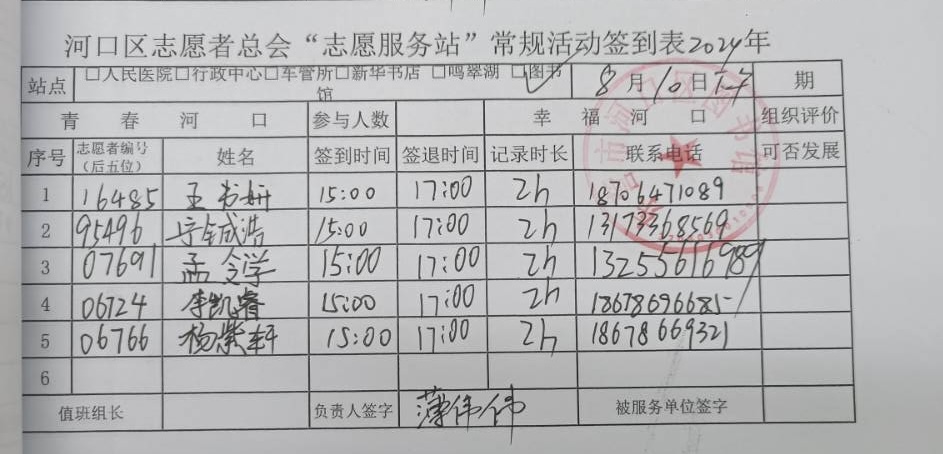 河口区志愿者总会“志愿服务站”常规活动签到表2024年
站点 □人民医院□行政中心□车管所□新华书店 □鸣翠湖 □图书馆 8月10日下午 期
青春河口 参与人数 幸福河口 组织评价
序号 志愿者编号（后五位） 姓名 签到时间 签退时间 记录时长 联系电话 可否发展
1 16485 王书妍 15:00 17:00 2h 18706471089
2 95496 诚浩 15:00 17:00 2h 13173368569
3 07691 孟令学 15:00 17:00 2h 13255616989
4 06724 李凯睿 15:00 17:00 2h 18678696685
5 06766 杨紫轩 15:00 17:00 2h 18678669321
6
值班组长 负责人签字 薄伟伟 被服务单位签字